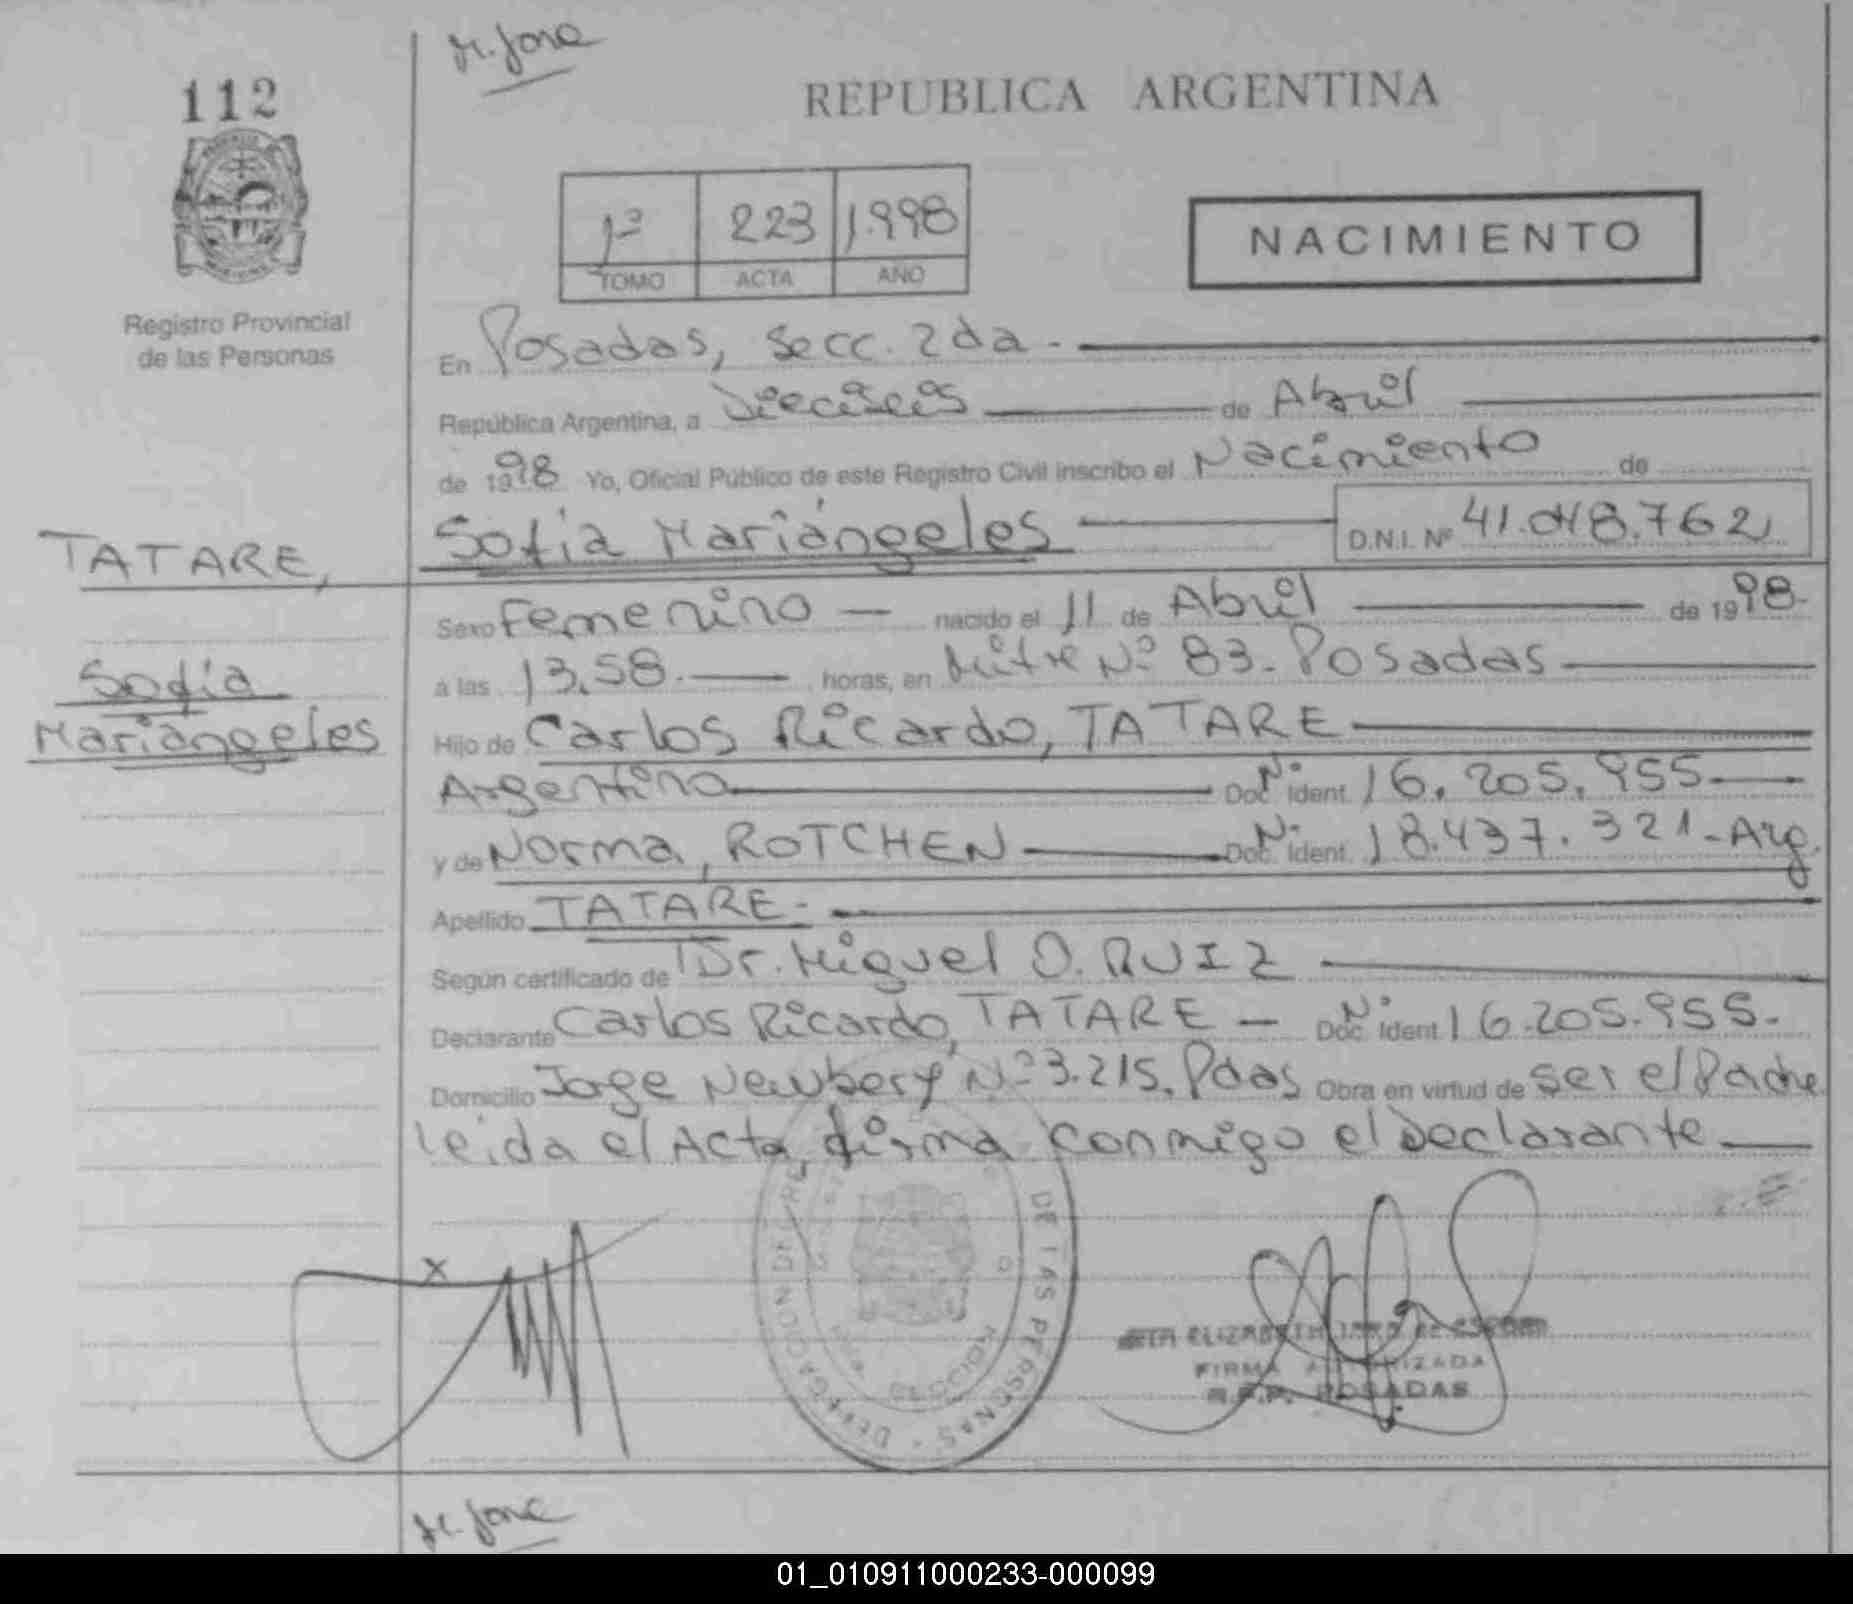 M. Jose
112
REPUBLICA ARGENTINA
1º 223 1.998
TOMO ACTA AÑO
NACIMIENTO
Registro Provincial
de las Personas
En Posadas, Secc. 2da.
República Argentina, a Dieciséis de Abril
de 1998 Yo, Oficial Público de este Registro Civil inscribo el Nacimiento de
TATARE,
Sofia Mariángeles D.N.I. Nº 41.048.762
Sexo Femenino nacido el 11 de Abril de 1998.
Sofia
Mariángeles
a las 13,58. horas, en Mitre Nº 83. Posadas
Hijo de Carlos Ricardo, TATARE
Argentino Doc. Nº Ident. 16.205.955.
y de Norma, ROTCHEN Doc. Nº Ident. 18.437.321 - Arg.
Apellido TATARE.
Según certificado de Dr. Miguel O. RUIZ
Declarante Carlos Ricardo, TATARE Doc. Nº Ident. 16.205.955.
Domicilio Jorge Newbery Nº 3.215, Pdas Obra en virtud de ser el Padre
leida el Acta, firma conmigo el Declarante
DE LAS PERSONAS
ELIZABETH
FIRMA AUTORIZADA
R.P.P. POSADAS
M. Jose
01_010911000233-000099